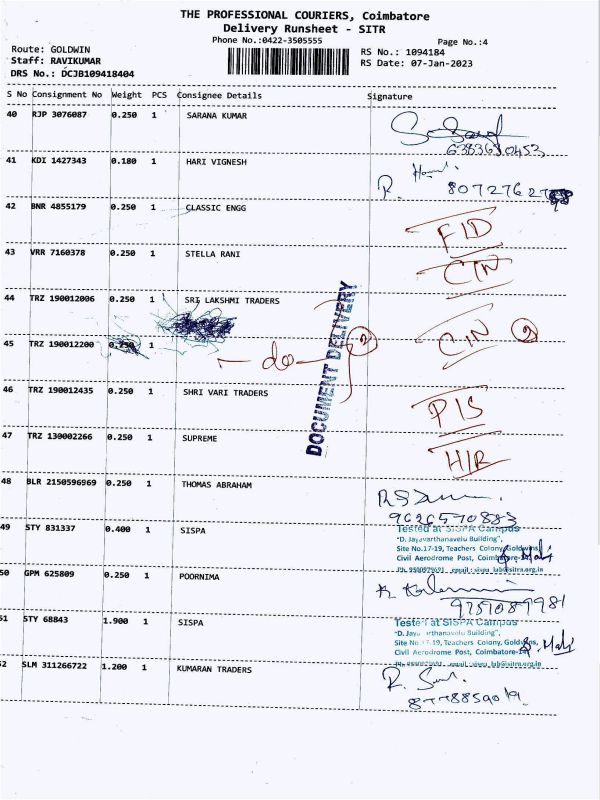 THE PROFESSIONAL COURIERS, Coimbatore
Delivery Runsheet - SITR
Phone No.:0422-3505555
Page No.:4
Route: GOLDWIN
RS No.: 1094184
Staff: RAVIKUMAR
RS Date: 07-Jan-2023
DRS No.: DCJB109418404
S No Consignment No Weight PCS Consignee Details Signature
40 RJP 3076087 0.250 1 SARANA KUMAR
6383680453
41 KDI 1427343 0.180 1 HARI VIGNESH
R.
42 BNR 4855179 0.250 1 CLASSIC ENGG
FID
43 VRR 7160378 0.250 1 STELLA RANI
CIN
44 TRZ 190012006 0.250 1 SRI LAKSHMI TRADERS
DOCUMENT DELIVERY
45 TRZ 190012200 0.250 1
- do - 2
CIN 2
46 TRZ 190012435 0.250 1 SHRI VARI TRADERS
PIS
47 TRZ 130002266 0.250 1 SUPREME
HIR
48 BLR 2150596969 0.250 1 THOMAS ABRAHAM
9626570883
49 STY 831337 0.400 1 SISPA
Tested at SISPA Campus
"D. Jayavarthanavelu Building",
Site No.17-19, Teachers Colony, Goldwins,
Civil Aerodrome Post, Coimbatore-14
50 GPM 625809 0.250 1 POORNIMA
9751089981
51 STY 68843 1.900 1 SISPA
Tested at SISPA Campus
"D. Jayavarthanavelu Building",
Site No.17-19, Teachers Colony, Goldwins,
Civil Aerodrome Post, Coimbatore-14
52 SLM 311266722 1.200 1 KUMARAN TRADERS
R.
8778859019